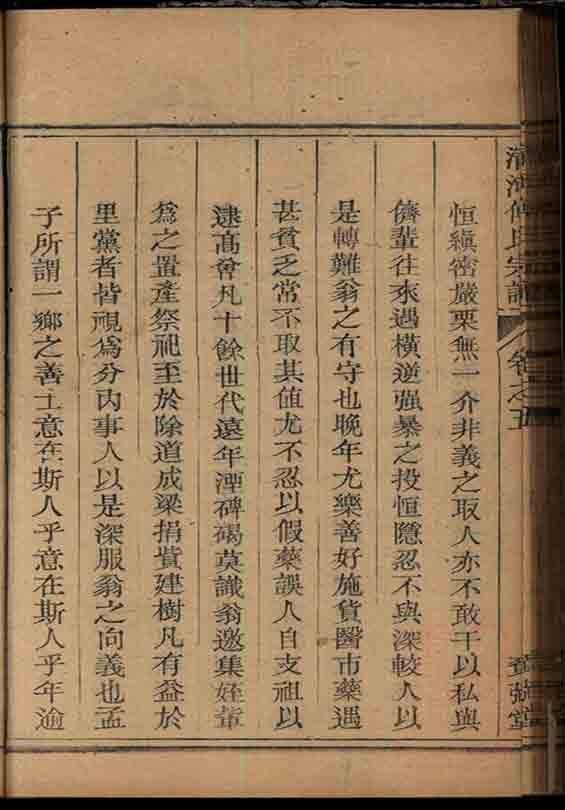 傅氏宗譜
卷之五
恒縝密嚴栗無一介非義之取人亦不敢干以私與
儕輩往來遇橫逆强暴之投恒隱忍不與深較人以
是轉難翁之有守也晚年尤樂善好施貨醫市藥遇
甚貧乏常不取其值尤不忍以假藥誤人自支祖以
逮高曾凡十餘世代遠年湮碑碣莫識翁邀集姪輩
爲之置產祭祀至於除道成梁捐貲建樹凡有益於
里黨者皆視爲分內事人以是深服翁之向義也孟
子所謂一鄉之善士意在斯人乎意在斯人乎年逾